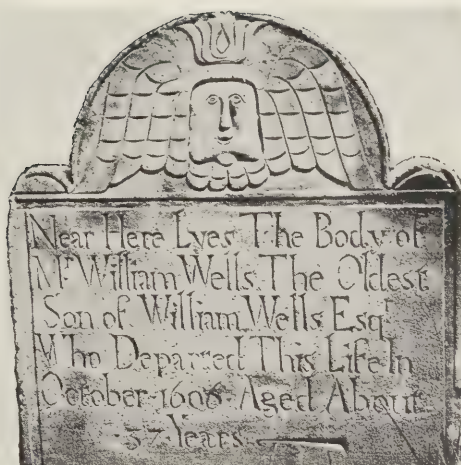 Near Here Lyes The Body of
Mr William Wells The Oldest
Son of William Wells Esqr
Who Departed This Life In
October Aged About
37 Years